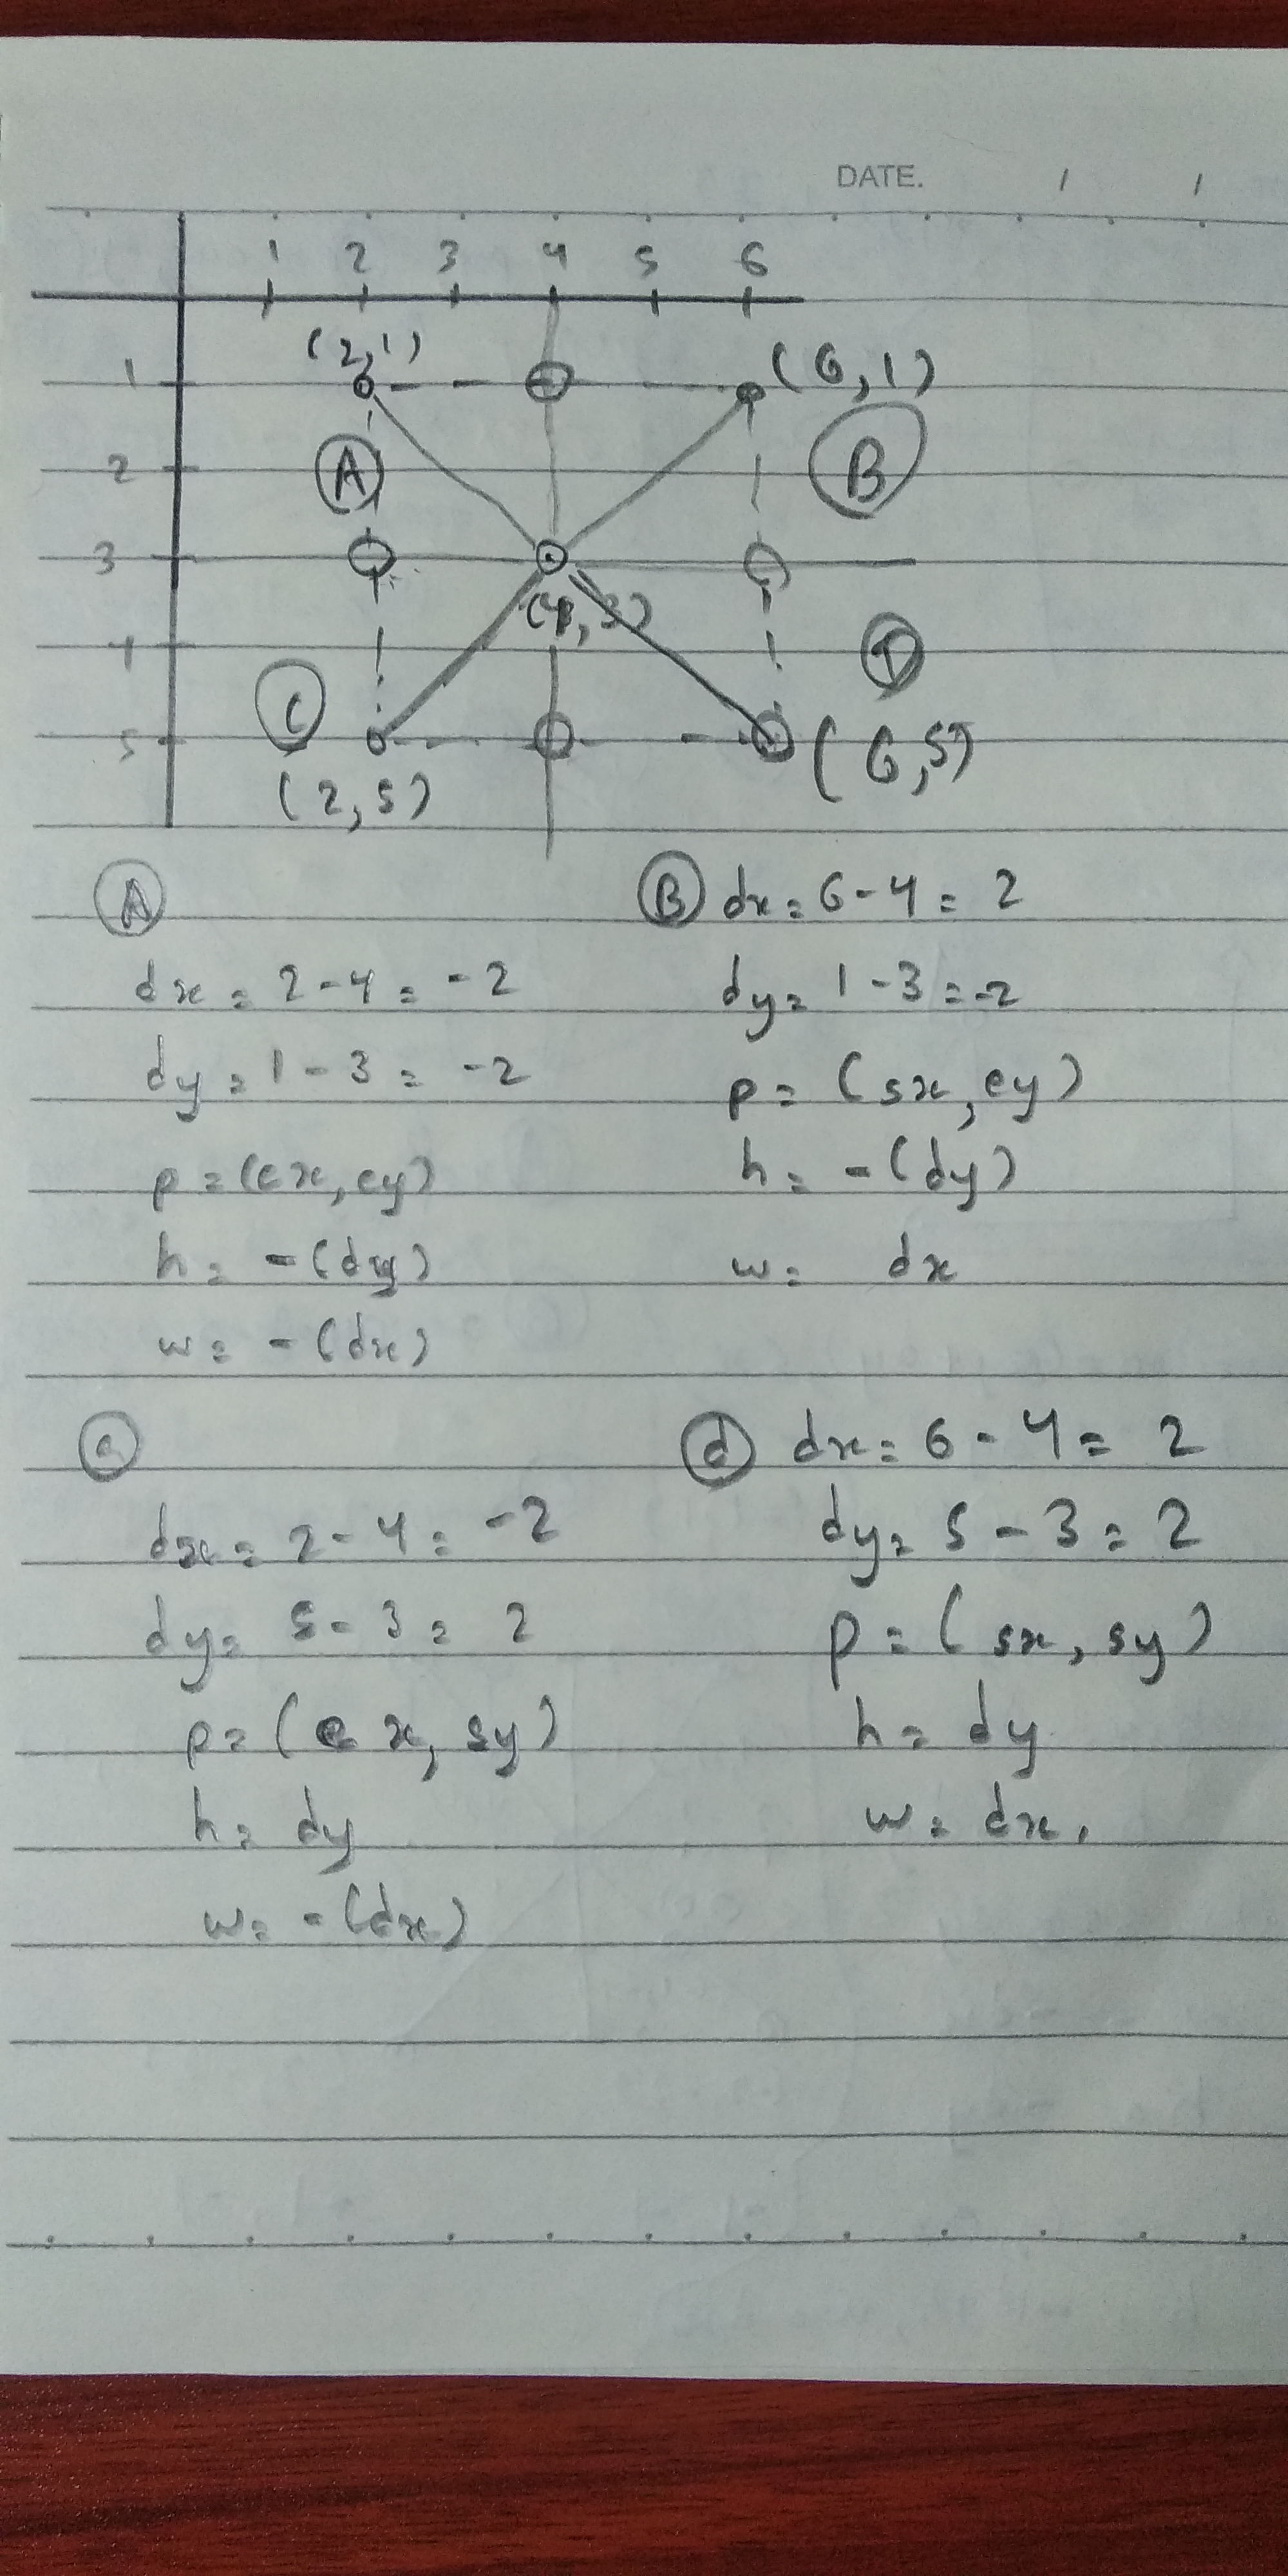 DATE. / /
1 2 3 4 5 6
(2,1)
1
(6,1)
A
2
B
3
(4,3)
4
D
C
5
(6,5)
(2,5)
A
dx = 2-4 = -2
dy = 1-3 = -2
p = (ex, ey)
h = -(dy)
w = -(dx)
B dx = 6-4 = 2
dy = 1-3 = -2
p = (sx, ey)
h = -(dy)
w = dx
c
dx = 2-4 = -2
dy = 5-3 = 2
p = (ex, sy)
h = dy
w = -(dx)
d dx = 6-4 = 2
dy = 5-3 = 2
p = (sx, sy)
h = dy
w = dx,